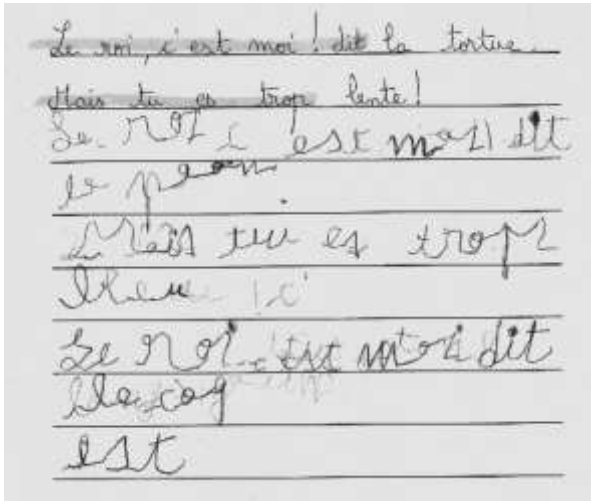 Le roi, c'est moi ! dit la tortue.
Mais tu es trop lente !
Le roi c est moi dit
le paon.
Mais tu es trop
Le roi c est moi dit
le coq
est